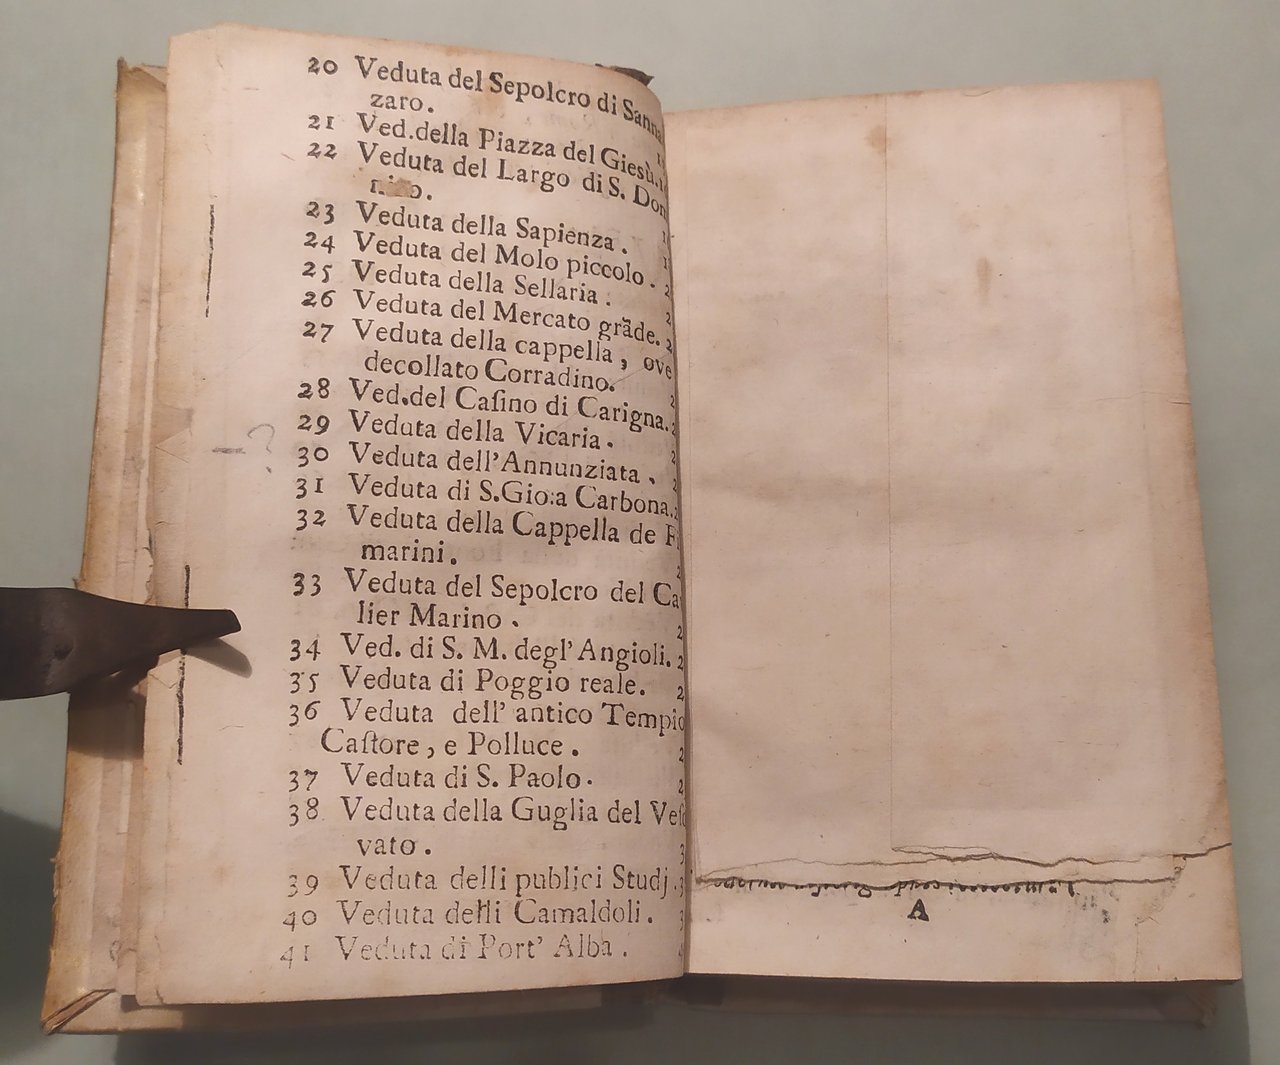 20 Veduta del Sepolcro di Sanna
zaro.
21 Ved.della Piazza del Giesù.
22 Veduta del Largo di S. Dom
nico.
23 Veduta della Sapienza .
24 Veduta del Molo piccolo . 2
25 Veduta della Sellaria . 2
26 Veduta del Mercato grãde. 2
27 Veduta della cappella , ove
decollato Corradino. 2
28 Ved.del Caſino di Carigna. 2
29 Veduta della Vicaria . 2
30 Veduta dell'Annunziata . 2
31 Veduta di S.Gio:a Carbona. 2
32 Veduta della Cappella de F
marini . 2
33 Veduta del Sepolcro del Ca
lier Marino . 2
34 Ved. di S. M. degl'Angioli. 2
35 Veduta di Poggio reale. 2
36 Veduta dell' antico Tempio
Caſtore , e Polluce . 2
37 Veduta di S. Paolo. 2
38 Veduta della Guglia del Veſc
vato . 3
39 Veduta delli publici Studj . 3
40 Veduta delli Camaldoli . 3
41 Veduta di Port' Alba .
A